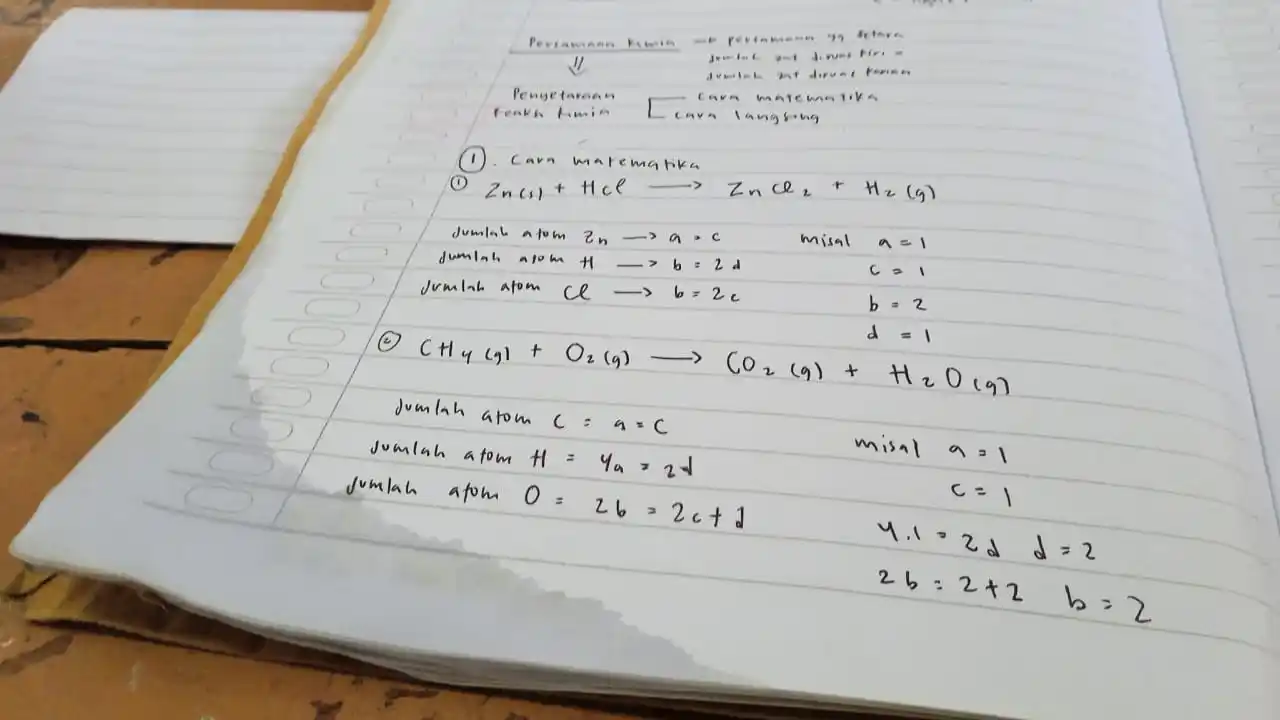 Persamaan kimia → persamaan yg setara
jumlah zat diruas kiri =
jumlah zat diruas kanan
⇓
Penyetaraan cara matematika
reaksi kimia cara langsung
① . Cara matematika
① Zn(s) + HCl ⟶ ZnCl₂ + H₂ (g)
Jumlah atom Zn → a = c misal a = 1
Jumlah atom H → b = 2d c = 1
Jumlah atom Cl → b = 2c b = 2
d = 1
② CH₄ (g) + O₂ (g) ⟶ CO₂ (g) + H₂O (g)
Jumlah atom C = a = c misal a = 1
Jumlah atom H = 4a = 2d c = 1
Jumlah atom O = 2b = 2c + d 4.1 = 2d d = 2
2b = 2+2 b = 2